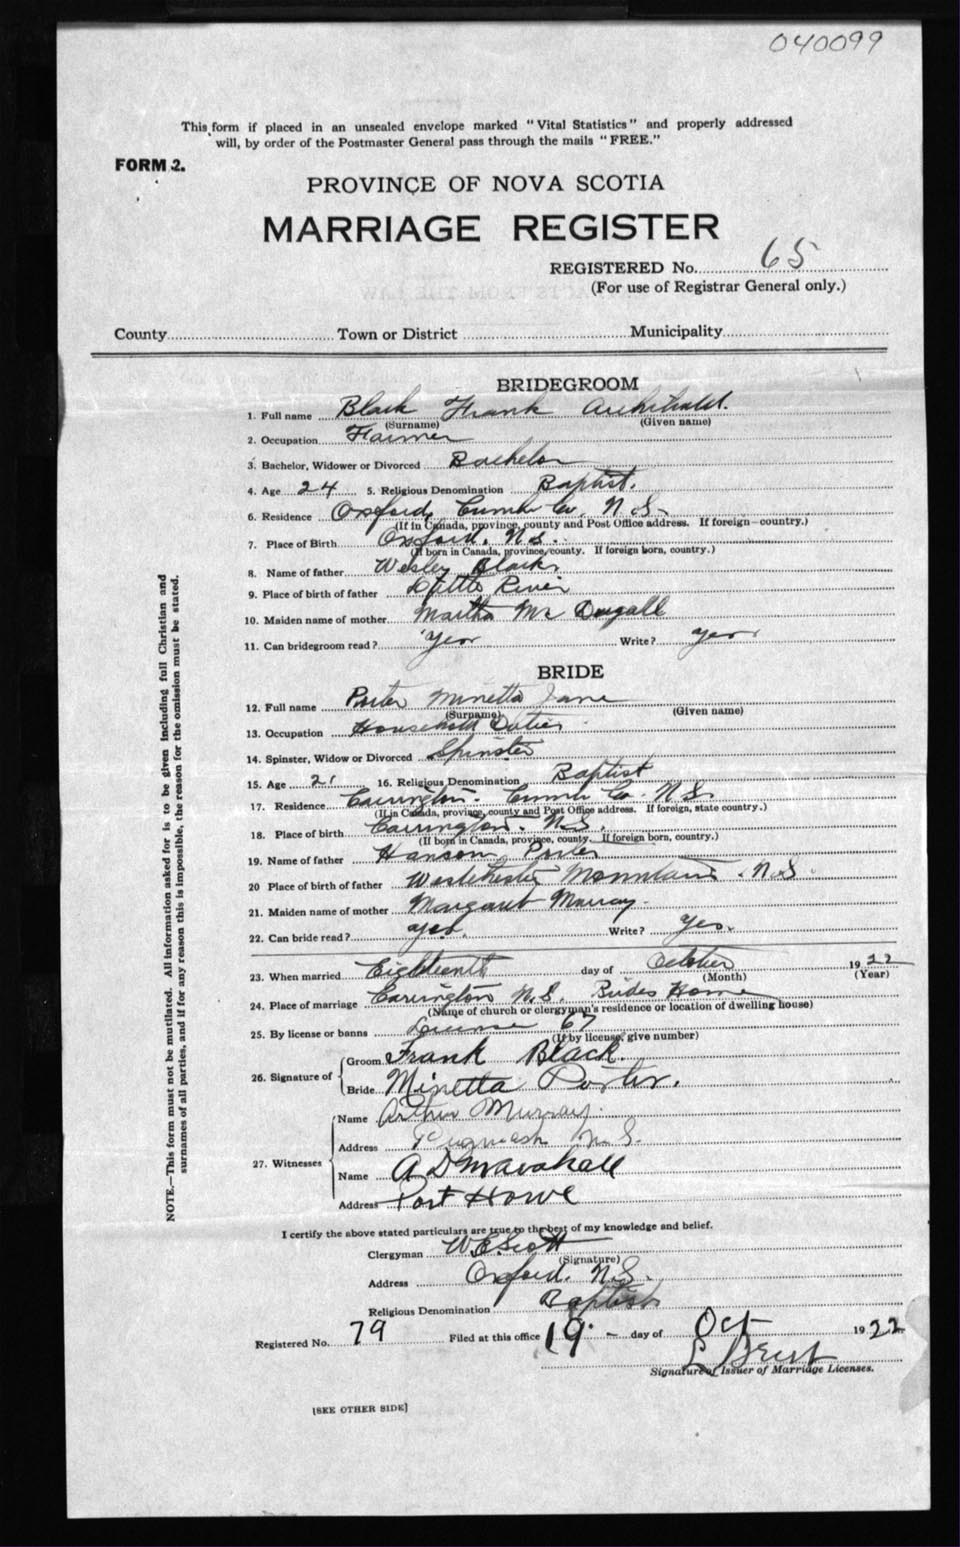 040099
This form if placed in an unsealed envelope marked "Vital Statistics" and properly addressed
will, by order of the Postmaster General pass through the mails "FREE."
FORM 2.
PROVINCE OF NOVA SCOTIA
MARRIAGE REGISTER
REGISTERED No. 65
(For use of Registrar General only.)
County Town or District Municipality
BRIDEGROOM
1. Full name Black Frank Archibald.
(Surname) (Given name)
2. Occupation Farmer
3. Bachelor, Widower or Divorced Bachelor
4. Age 24 5. Religious Denomination Baptist.
6. Residence Oxford, Cumb Co. N.S.
(If in Canada, province, county and Post Office address. If foreign—country.)
7. Place of Birth Oxford. N.S.
(If born in Canada, province/county. If foreign born, country.)
8. Name of father Wesley Black
9. Place of birth of father Little River
10. Maiden name of mother Martha Mc Dougall
11. Can bridegroom read? Yes Write? Yes
BRIDE
12. Full name Porter Minetta Jane
(Surname) (Given name)
13. Occupation Household Duties
14. Spinster, Widow or Divorced Spinster
15. Age 21 16. Religious Denomination Baptist
17. Residence Carrington. Cumb Co. N.S.
(If in Canada, province, county and Post Office address. If foreign, state country.)
18. Place of birth Carrington. N.S.
(If born in Canada, province, county. If foreign born, country.)
19. Name of father Hanson Porter
20 Place of birth of father Westchester Mountain. N.S.
21. Maiden name of mother Margaret Murray.
22. Can bride read? Yes. Write? Yes.
23. When married Eighteenth day of October 1922
(Month) (Year)
24. Place of marriage Carrington N.S. Brides Home
(Name of church or clergyman's residence or location of dwelling house)
25. By license or banns License 67
(If by license, give number)
26. Signature of Groom Frank Black.
Bride Minetta Porter.
27. Witnesses
Name Arthur Murray.
Address Pugwash N.S.
Name A D
Address Port Howe
I certify the above stated particulars are true to the best of my knowledge and belief.
Clergyman W.E. Scott
(Signature)
Address Oxford. N.S.
Religious Denomination Baptist
Registered No. 79 Filed at this office 19 - day of Oct 1922
Signature of Issuer of Marriage Licenses.
[SEE OTHER SIDE]
NOTE.—This form must not be mutilated. All information asked for is to be given including full Christian and
surnames of all parties, and if for any reason this is impossible, the reason for the omission must be stated.